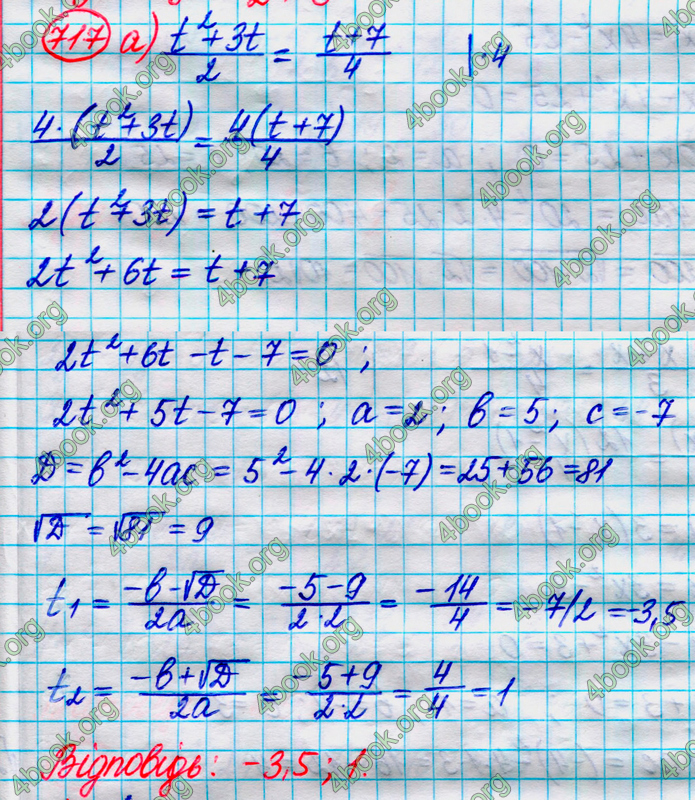 717 а) (t²+3t)/2 = (t+7)/4 | ·4
4·(t²+3t)/2 = 4(t+7)/4
2(t²+3t) = t+7
2t²+6t = t+7
2t²+6t-t-7=0 ;
2t²+5t-7=0 ; a=2; в=5; c=-7
D=в²-4ac = 5²-4·2·(-7)=25+56=81
√D = √81 = 9
t₁ = (-в-√D)/2a = (-5-9)/(2·2) = -14/4 = -7/2 =-3,5
t₂ = (-в+√D)/2a = (-5+9)/(2·2) = 4/4 = 1
Відповідь: -3,5 ; 1.
4book.org